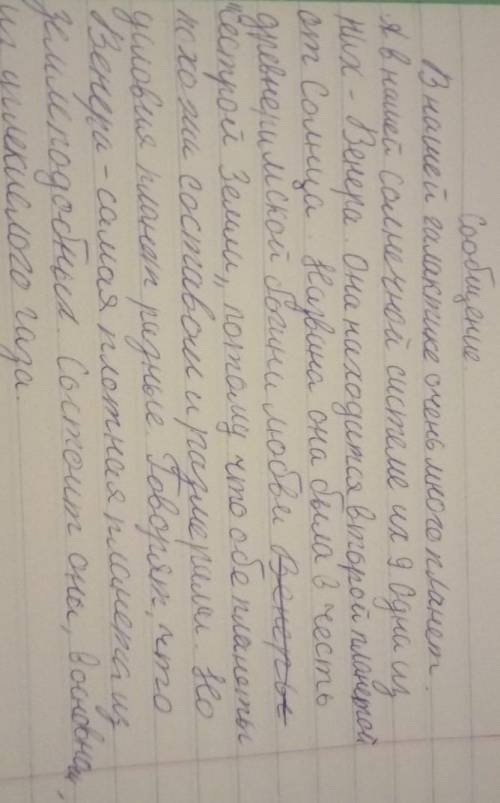 Сообщение
В нашей галактике очень много планет.
А в нашей солнечной системе их 9. Одна из
них - Венера. Она находится второй планетой
от Солнца. Названа она была в честь
древнеримской богини любви Венеры
"Сестрой Земли", потому что обе планеты
похожи составом и размерами. Но
условия планет разные. Говорят, что
Венера - самая плотная планета из
землеподобных. Состоит она, в основном,
из углекислого газа.